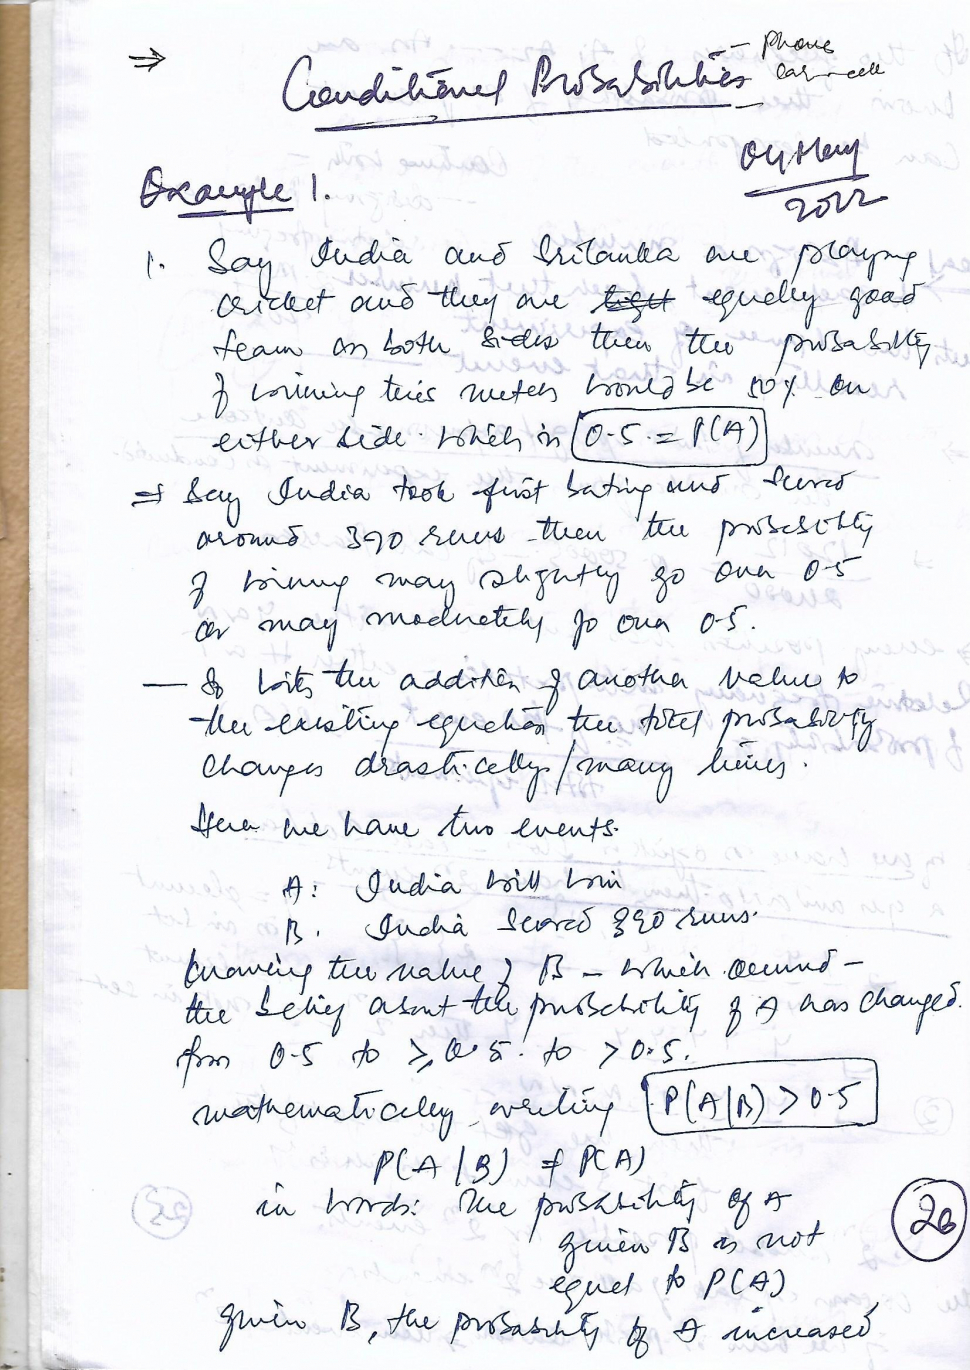 ⇒ Conditional Probabilities – Phone
cell
04 May
2022
Example 1.
1. Say India and Srilanka are playing
cricket and they are equally good
team on both sides then the probability
of winning this match would be 50% on
either side. which is 0.5 = P(A)
⇒ Say India took first bating and scored
around 390 runs then the probability
of winning may slightly go over 0.5
or may moderately go over 0.5.
— So with the addition of another value to
the existing equation the total probability
changes drastically / many times.
Here we have two events.
A: India will win
B. India scored 390 runs.
Knowing the value of B – which occured –
the belief about the probability of A has changed.
from 0.5 to ≥ 0.5. to > 0.5.
mathematically writing P(A|B) > 0.5
P(A|B) ≠ P(A)
in words: The probability of A
given B is not
equal to P(A)
given B, the probability of A increased